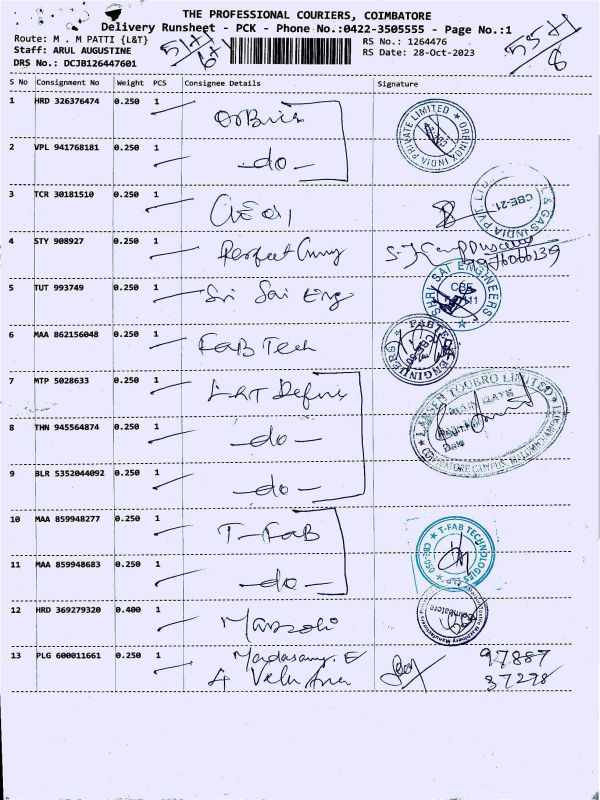 THE PROFESSIONAL COURIERS, COIMBATORE
Delivery Runsheet - PCK - Phone No.:0422-3505555 - Page No.:1
Route: M . M PATTI {L&T}
RS No.: 1264476
Staff: ARUL AUGUSTINE
RS Date: 28-Oct-2023
DRS No.: DCJB126447601
S No Consignment No Weight PCS Consignee Details Signature
1 HRD 326376474 0.250 1
ORBINOX INDIA PRIVATE LIMITED
2 VPL 941768181 0.250 1 -do-
3 TCR 30181510 0.250 1
GAS INDIA PVT. LTD. CBE-21.
4 STY 908927 0.250 1 Perfect
9976066239
5 TUT 993749 0.250 1 Sri Sai Eng
SHRI SAI ENGINEERS CBE
6 MAA 862156048 0.250 1 FAB Tech
FABTECH ENGINEERS
7 MTP 5028633 0.250 1 L&T Defns
LARSEN & TOUBRO LIMITED
MAIN GATE
COIMBATORE CAMPUS
8 THN 945564874 0.250 1 -do-
9 BLR 5352044092 0.250 1 -do-
10 MAA 859948277 0.250 1 T-FAB
T-FAB TECHNOLOGIES
11 MAA 859948683 0.250 1 -do-
12 HRD 369279320 0.400 1
Coimbatore
13 PLG 600011661 0.250 1 Madasamy. E
97887
37278